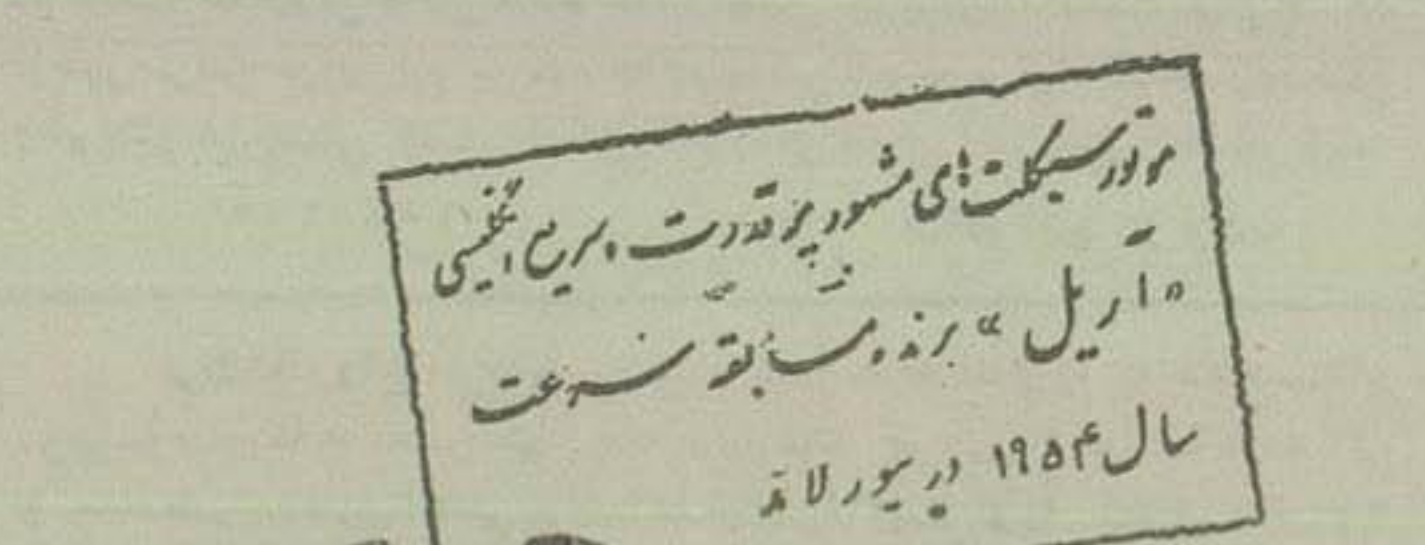 موتورسیکلت‌های مشهور پرقدرت و سریع انگلیسی
«آریل» برنده مسابقه سرعت
سال ۱۹۵۴ در سورلاند